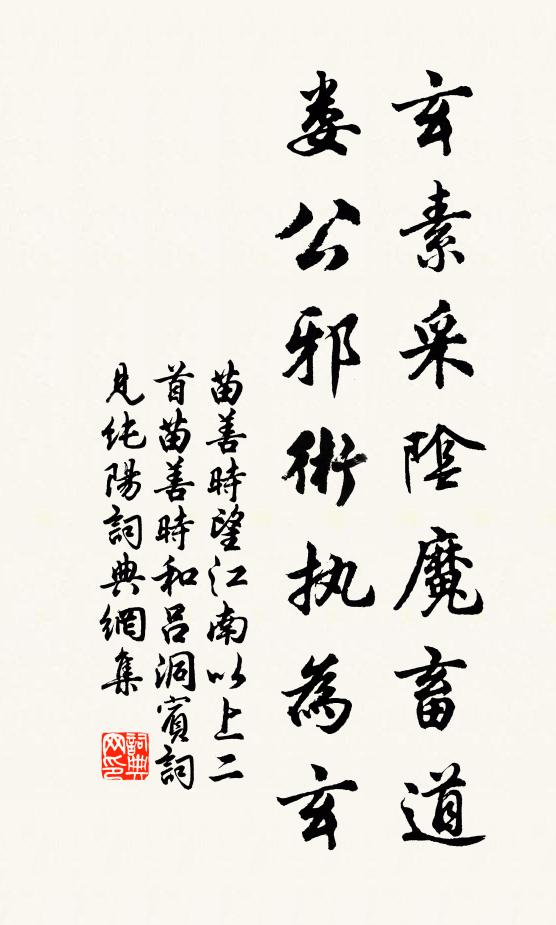 玄素采陰魔畜道
娄公邪術执為玄
苗善時望江南以上二
首苗善時和吕洞賓詞
見纯陽詞典網集
詞典網印